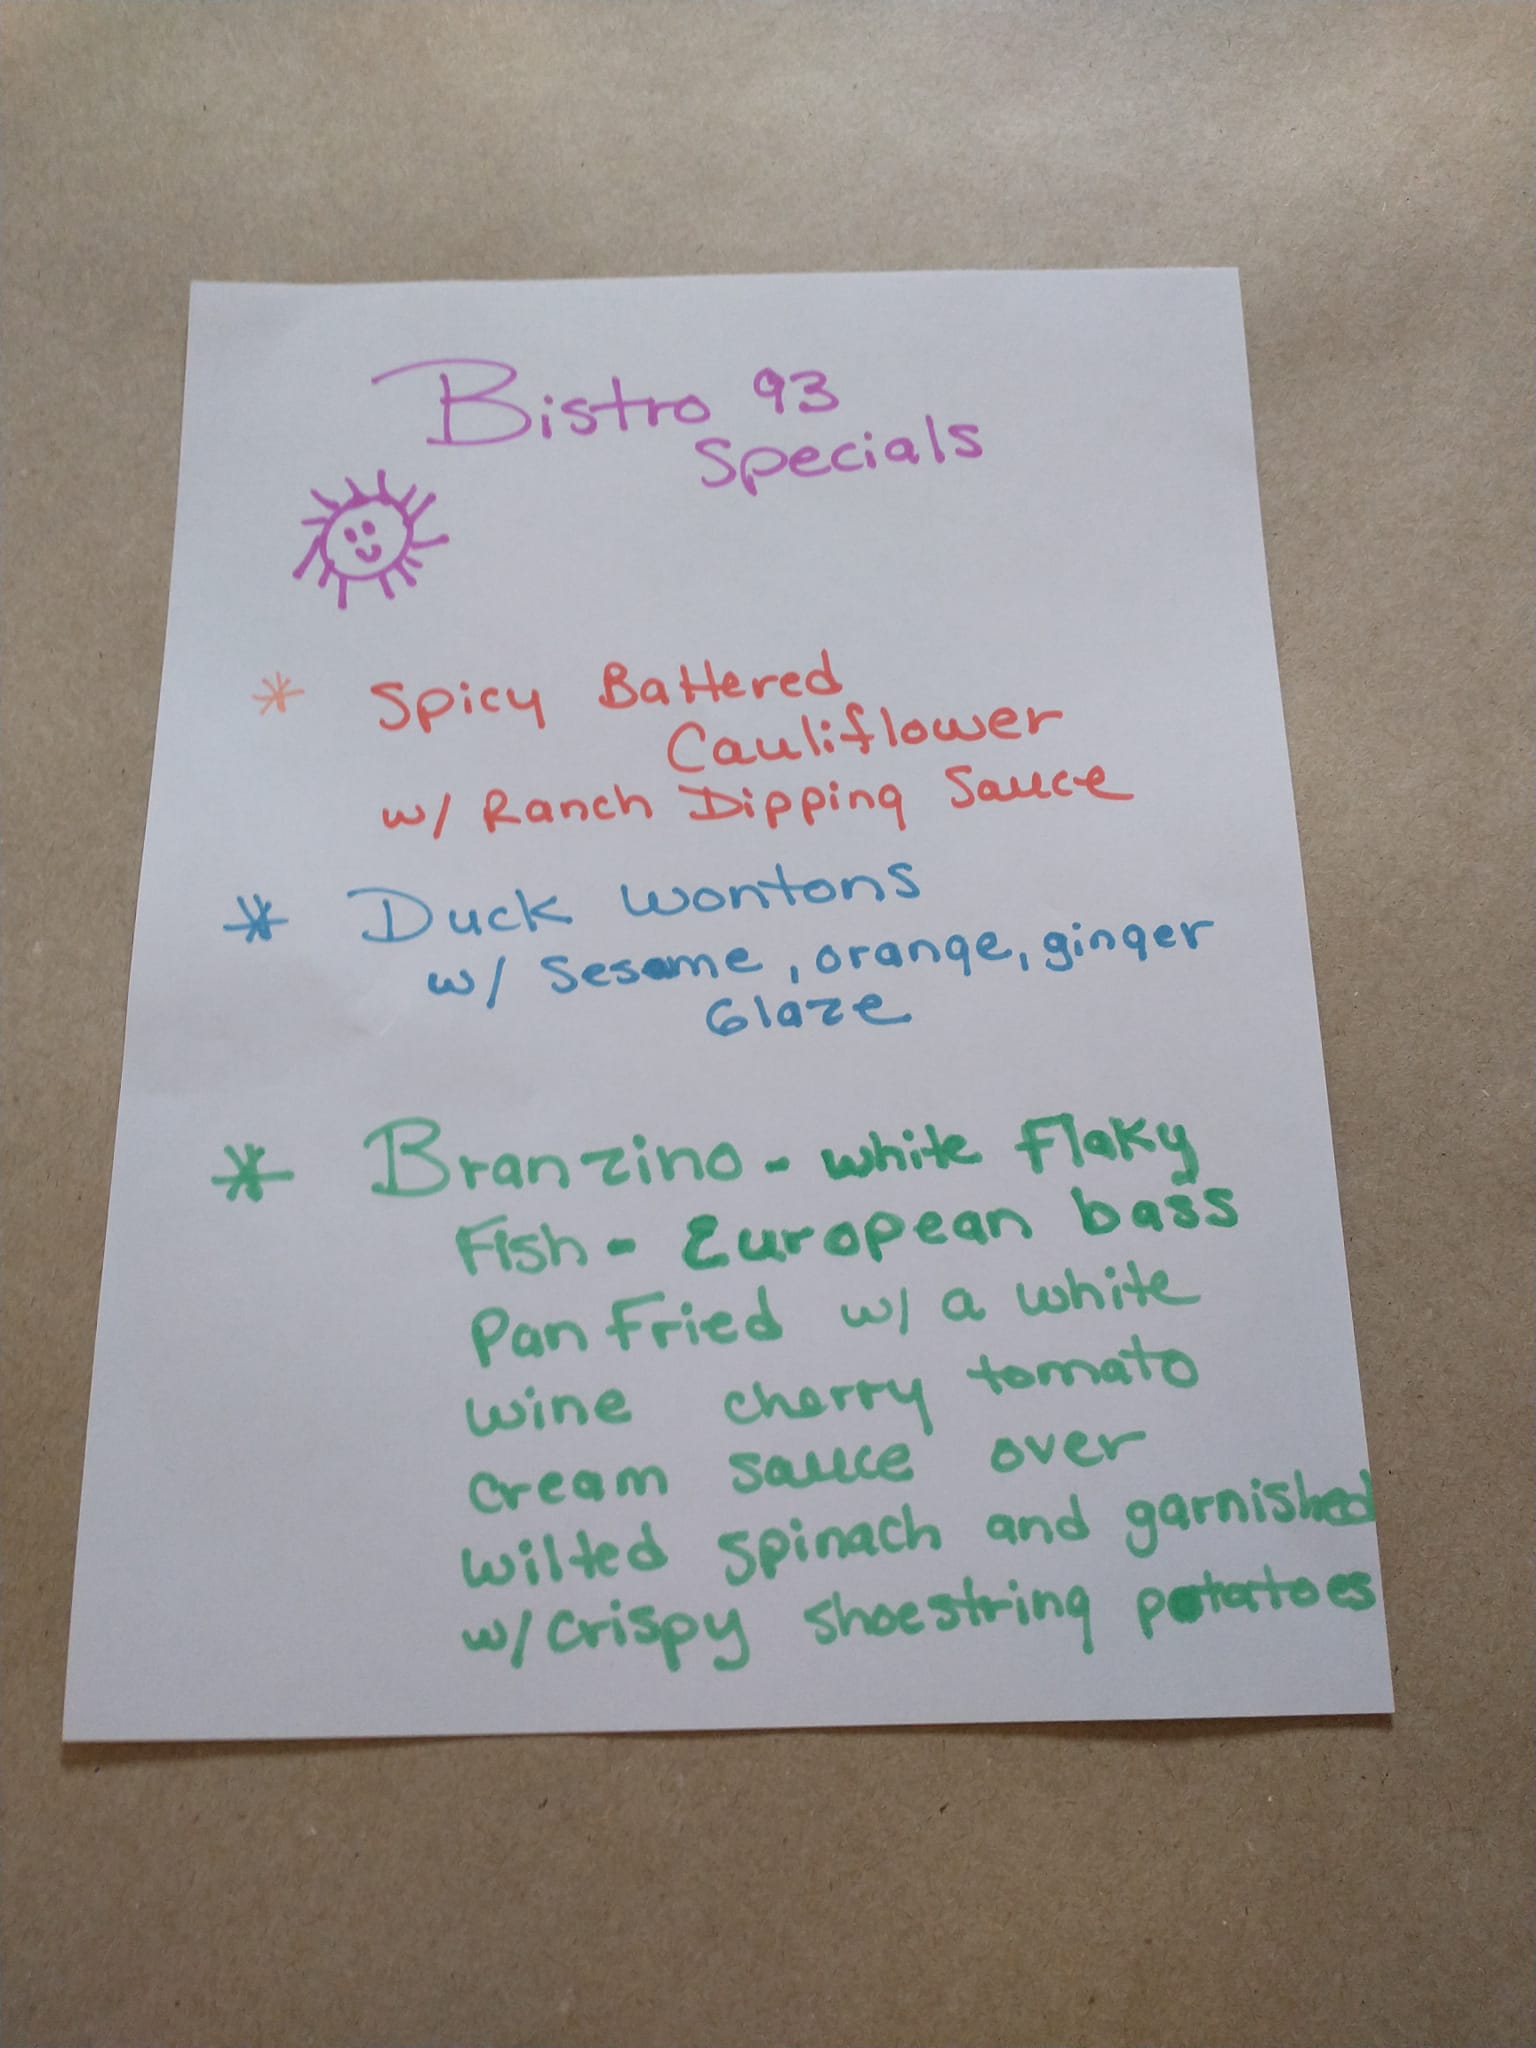 Bistro 93
Specials
* Spicy Battered
Cauliflower
w/ Ranch Dipping Sauce
* Duck wontons
w/ Sesame, orange, ginger
Glaze
* Branzino - white flaky
Fish - European bass
Pan Fried w/ a white
wine cherry tomato
cream sauce over
wilted spinach and garnished
w/ crispy shoestring potatoes